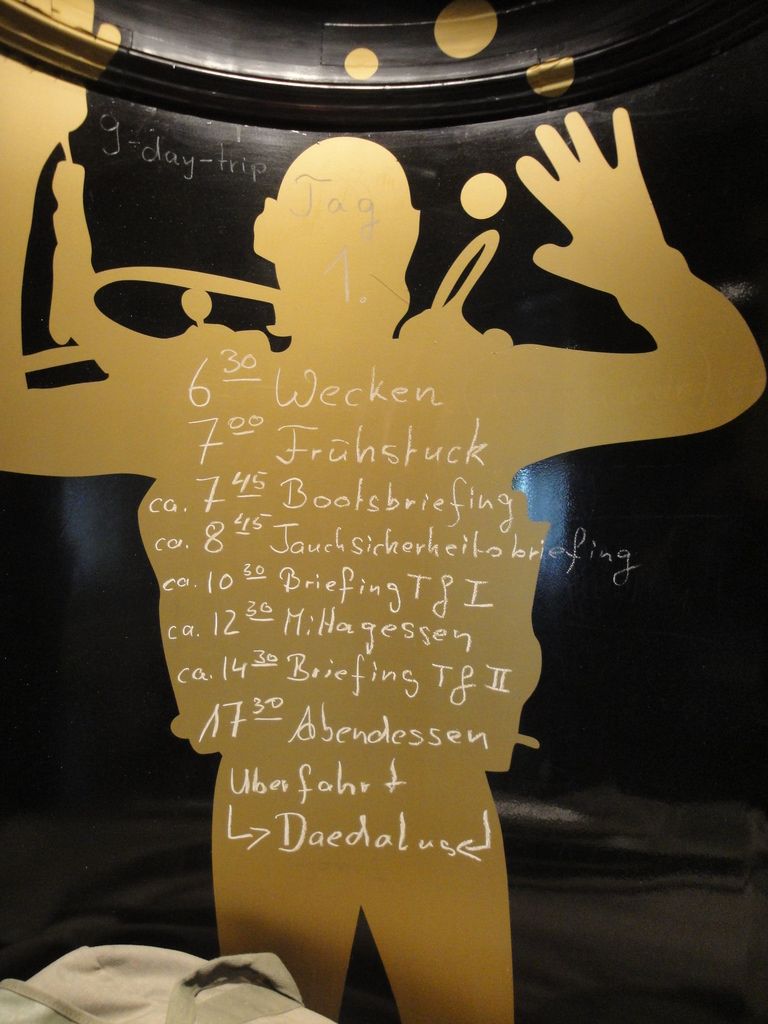 9-day-trip
Tag
1.
6 30 Wecken
7 00 Frühstuck
ca. 7 45 Bootsbriefing
ca. 8 45 Tauchsicherheitsbriefing
ca. 10 30 Briefing TG I
ca. 12 30 Mittagessen
ca. 14 30 Briefing TG II
17 30 Abendessen
Uberfahrt
↳ Daedalus ↲